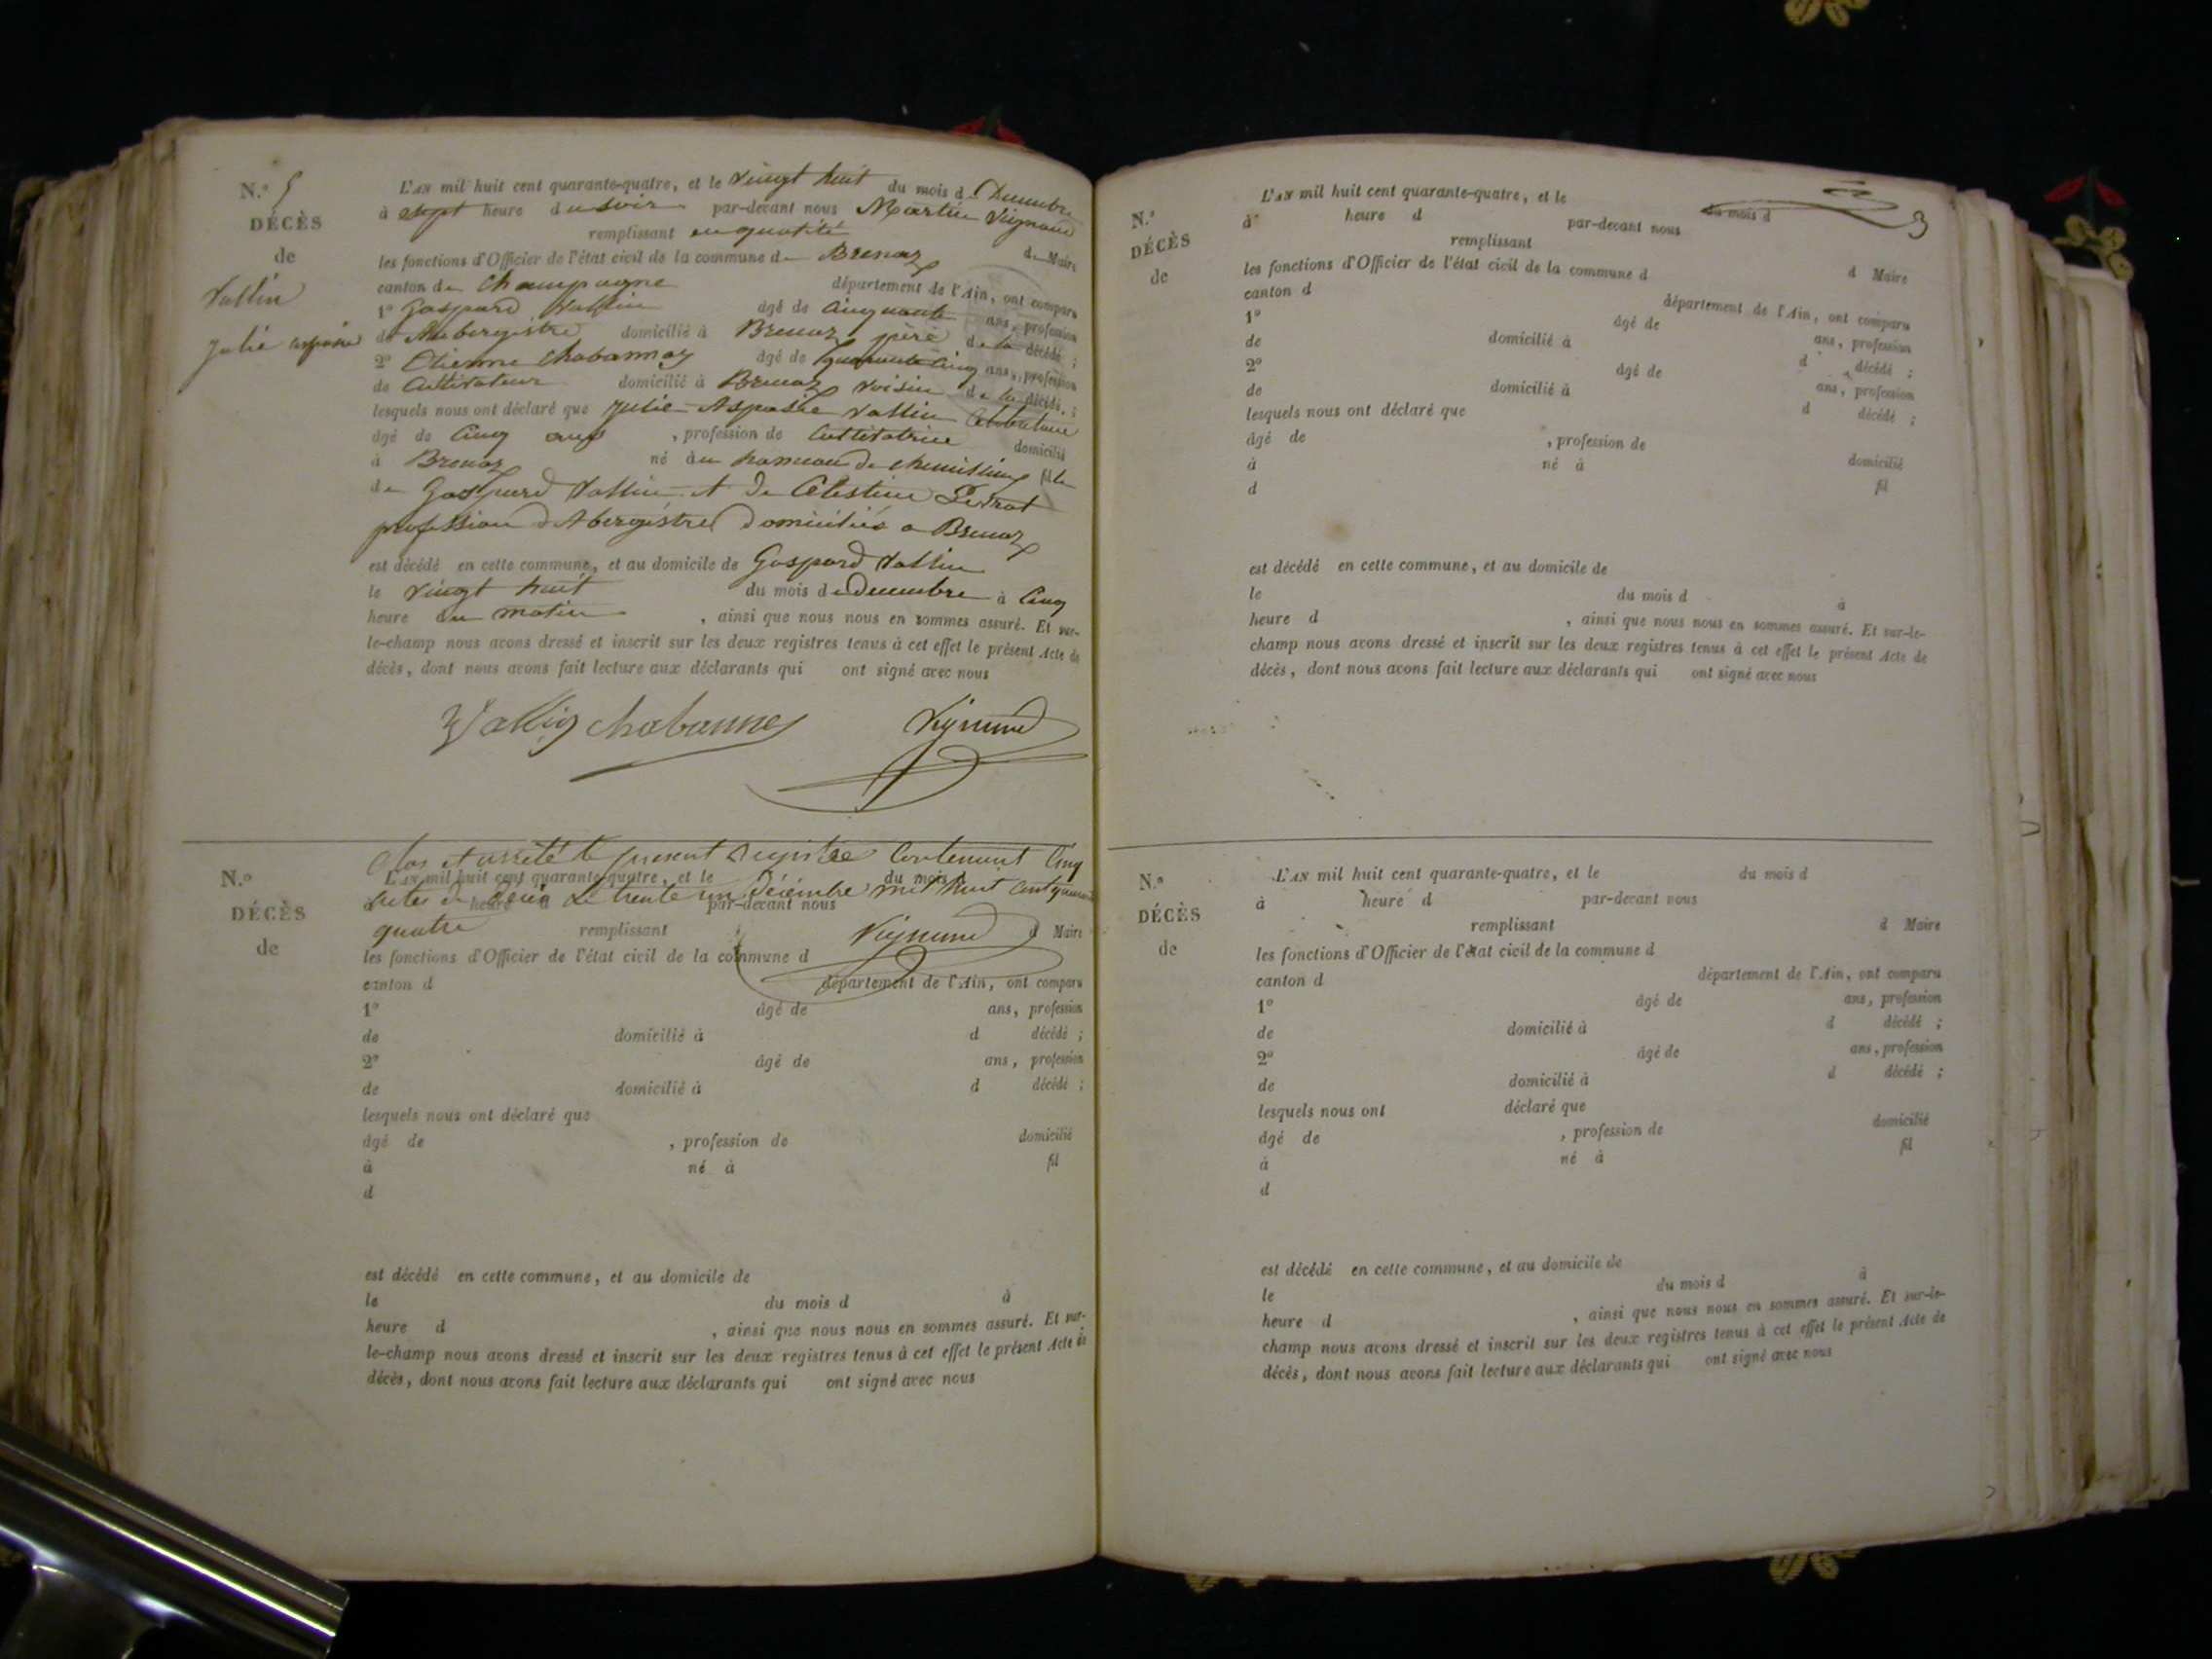 N.º 5
DÉCÈS
de
Vallin
Julie aspasie
L'AN mil huit cent quarante-quatre, et le vingt huit du mois de Decembre
à sept heure du soir par-devant nous Martin Vignand
remplissant en qualité de Maire
les fonctions d'Officier de l'état civil de la commune de Brenaz
canton de Champagne département de l'Ain, ont comparu
1º Gaspard Vallin âgé de Cinquante ans, profession
de Aubergiste domicilié à Brenaz père de la décédé ;
2º Etienne Chabannay âgé de quarante Cinq ans, profession
de Cultivateur domicilié à Brenaz voisin de la décédé ;
lesquels nous ont déclaré que Julie Aspasie Vallin Célibataire
âgé de Cinq ans , profession de Cultivatrice domicilié
à Brenaz né au hameau de fille
de Gaspard Vallin et de Célestine Perrot
profession d'Abergistre domiciliés a Brenaz
est décédé en cette commune, et au domicile de Gaspard Vallin
le vingt huit du mois de Decembre à Cinq
heure du matin , ainsi que nous nous en sommes assuré. Et sur-
le-champ nous avons dressé et inscrit sur les deux registres tenus à cet effet le présent Acte de
décès, dont nous avons fait lecture aux déclarants qui ont signé avec nous
Vallin Chabannes Vignand
Clos et arrêté le present Registre Contenant Cinq
actes de décès Le trente un Décembre mil huit Cent quarante
quatre
Vignand
N.º
DÉCÈS
de
L'AN mil huit cent quarante-quatre, et le du mois d
à heure d par-devant nous
remplissant d Maire
les fonctions d'Officier de l'état civil de la commune d
canton d département de l'Ain, ont comparu
1º âgé de ans, profession
de domicilié à d décédé ;
2º âgé de ans, profession
de domicilié à d décédé ;
lesquels nous ont déclaré que
âgé de , profession de domicilié
à né à fil
d
est décédé en cette commune, et au domicile de
le du mois d à
heure d , ainsi que nous nous en sommes assuré. Et sur-
le-champ nous avons dressé et inscrit sur les deux registres tenus à cet effet le présent Acte de
décès, dont nous avons fait lecture aux déclarants qui ont signé avec nous
3
N.º
DÉCÈS
de
L'AN mil huit cent quarante-quatre, et le du mois d
à heure d par-devant nous
remplissant d Maire
les fonctions d'Officier de l'état civil de la commune d
canton d département de l'Ain, ont comparu
1º âgé de ans, profession
de domicilié à d décédé ;
2º âgé de ans, profession
de domicilié à d décédé ;
lesquels nous ont déclaré que
âgé de , profession de domicilié
à né à fil
d
est décédé en cette commune, et au domicile de
le du mois d à
heure d , ainsi que nous nous en sommes assuré. Et sur-le-
champ nous avons dressé et inscrit sur les deux registres tenus à cet effet le présent Acte de
décès, dont nous avons fait lecture aux déclarants qui ont signé avec nous
N.º
DÉCÈS
de
L'AN mil huit cent quarante-quatre, et le du mois d
à heure d par-devant nous
remplissant d Maire
les fonctions d'Officier de l'état civil de la commune d
canton d département de l'Ain, ont comparu
1º âgé de ans, profession
de domicilié à d décédé ;
2º âgé de ans, profession
de domicilié à d décédé ;
lesquels nous ont déclaré que
âgé de , profession de domicilié
à né à fil
d
est décédé en cette commune, et au domicile de
le du mois d à
heure d , ainsi que nous nous en sommes assuré. Et sur-le-
champ nous avons dressé et inscrit sur les deux registres tenus à cet effet le présent Acte de
décès, dont nous avons fait lecture aux déclarants qui ont signé avec nous